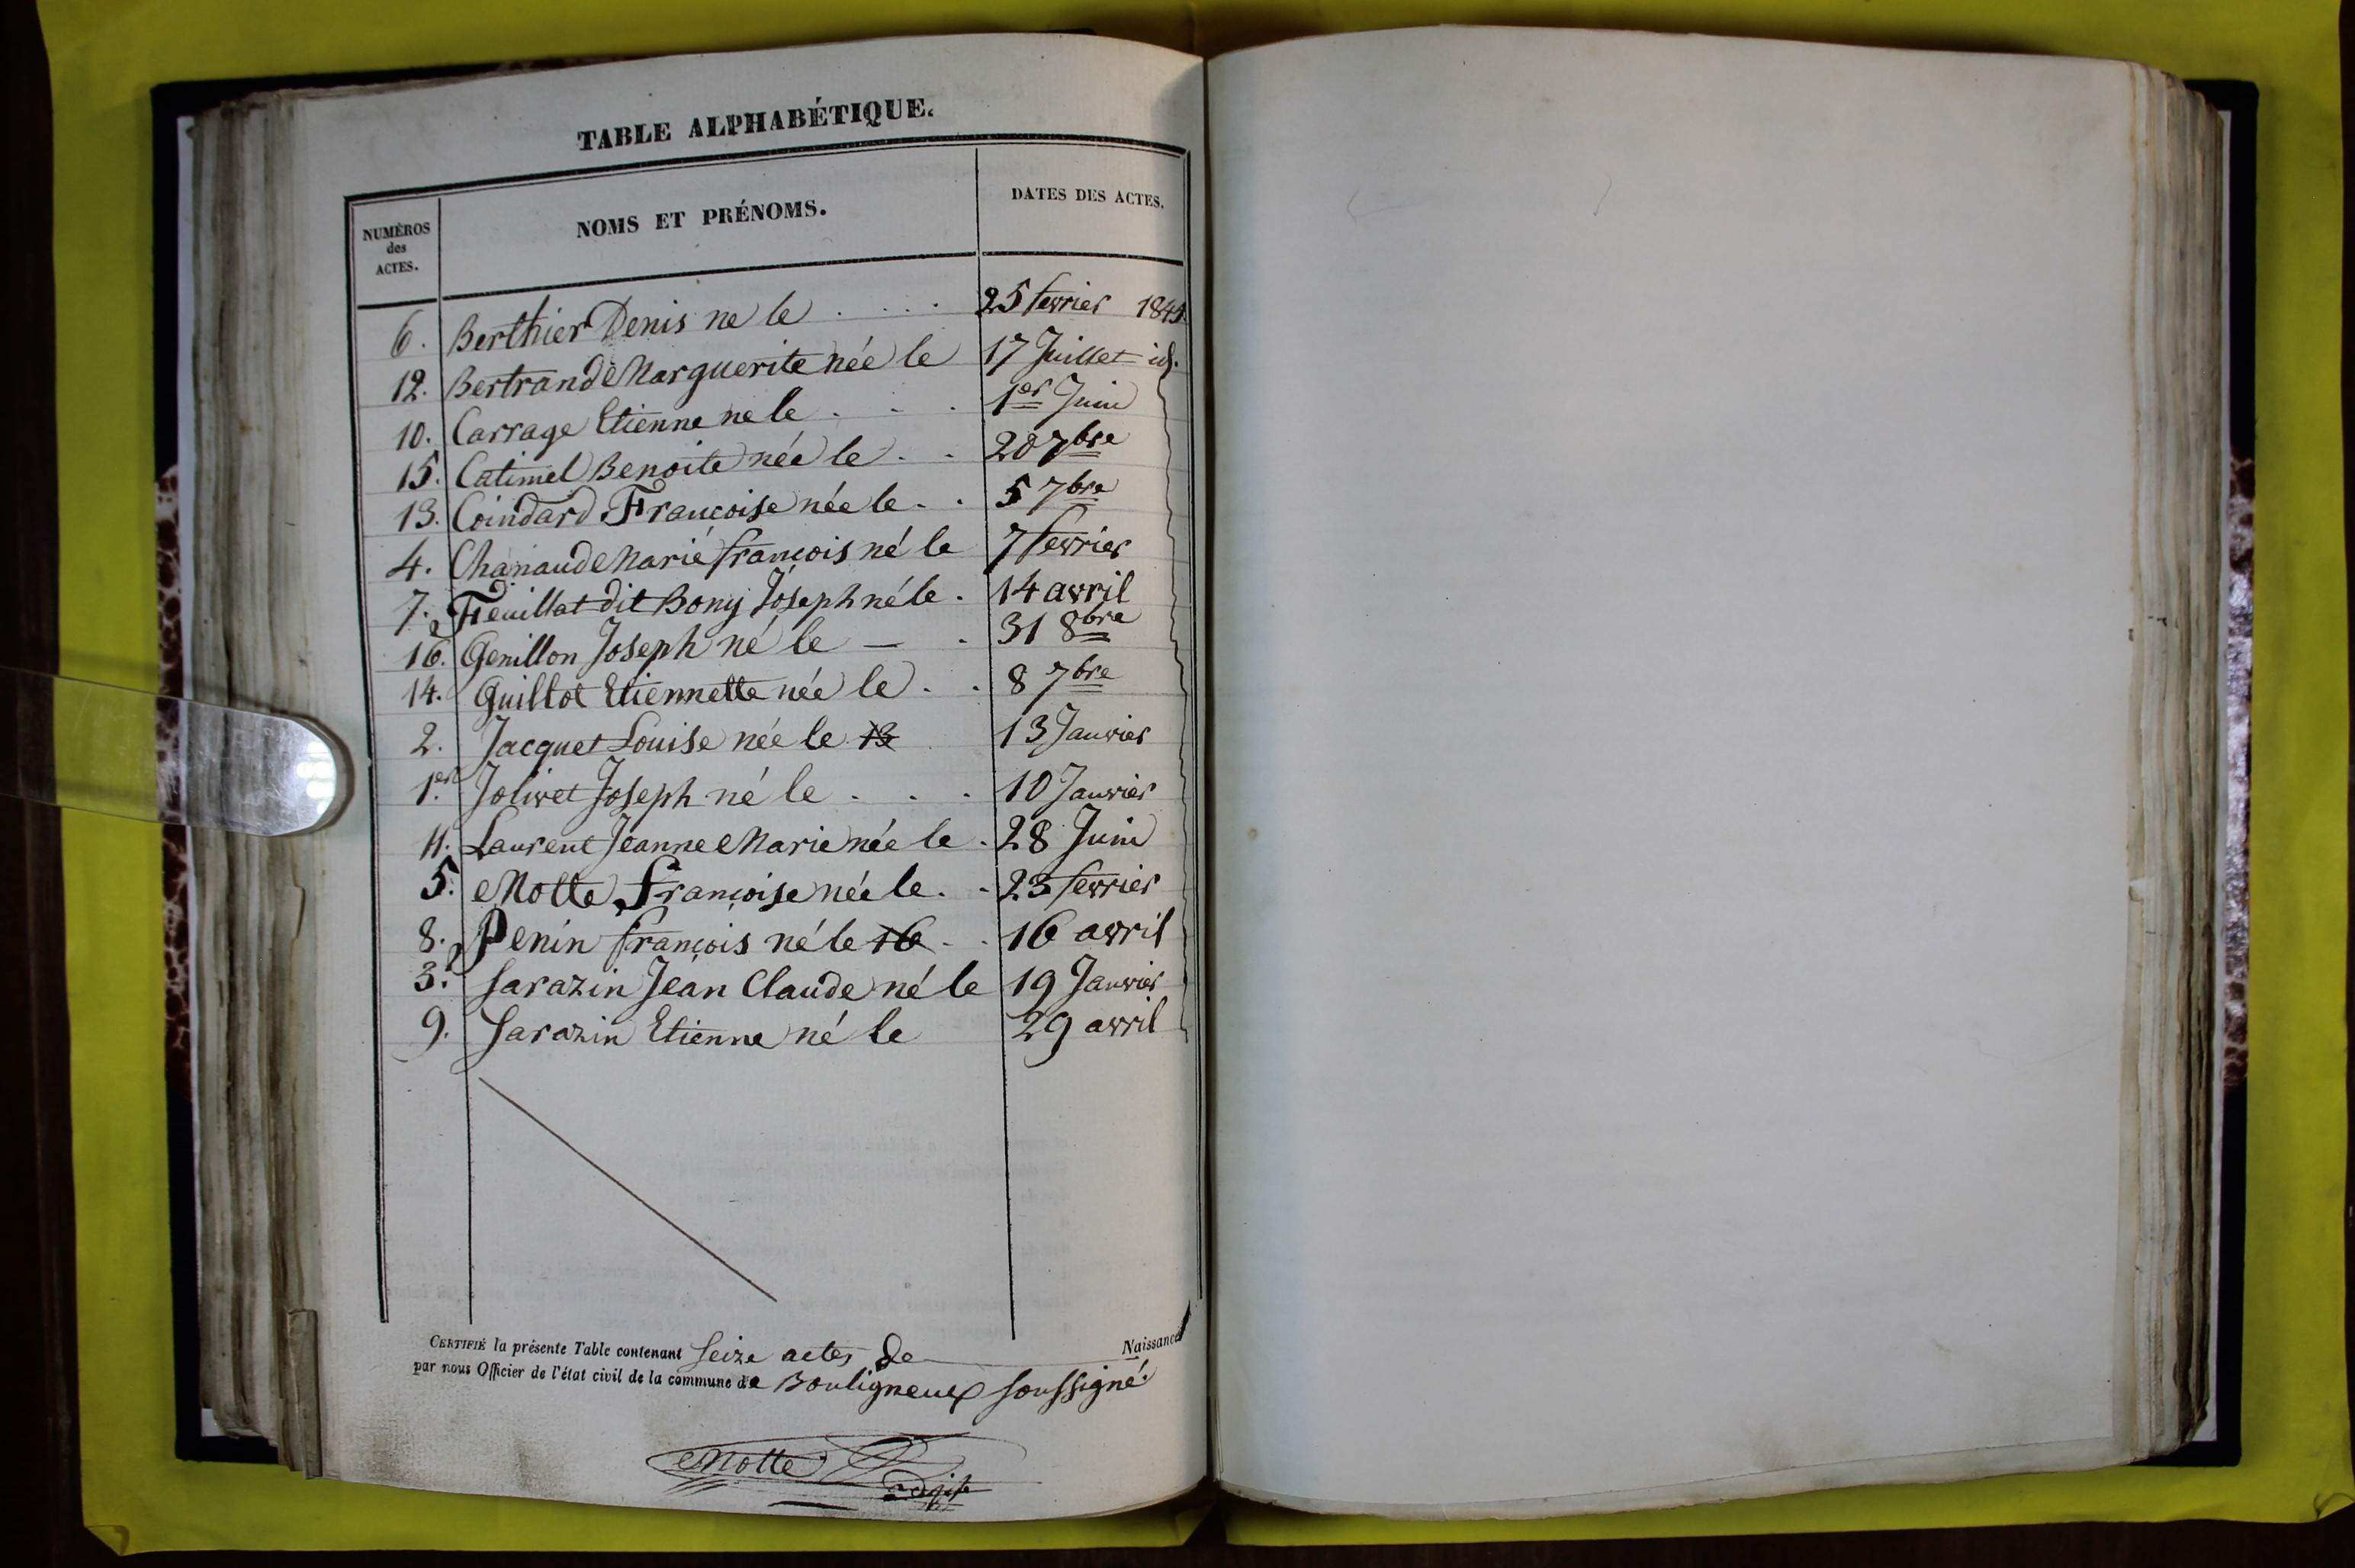 TABLE ALPHABÉTIQUE.
NUMÉROS
des
ACTES.
NOMS ET PRÉNOMS.
DATES DES ACTES.
6. Berthier Denis né le . . . . 25 fevrier
12. Bertrand Marguerite née le 17 Juillet id.
10. Carrage Etienne né le . . . 1er Juin
15. Catimel Benoite née le . . 20 7bre
13. Coindard Françoise née le . . 5 7bre
4. Chanaud Marie françois né le 7 fevrier
7. Feuillat dit Bony Joseph né le . 14 avril
16. Genillon Joseph né le — . 31 8bre
14. Guillot Etiennette née le . . 8 7bre
2. Jacquet Louise née le 13 13 Janvier
1er Jolivet Joseph né le . . . 10 Janvier
11. Laurent Jeanne Marie née le . 28 Juin
5. Motte Françoise née le . . 23 fevrier
8. Penin françois né le 16 . . 16 avril
3. Sarazin Jean Claude né le 19 Janvier
9. Sarazin Etienne né le 29 avril
CERTIFIÉ la présente Table contenant seize actes de Naissance
par nous Officier de l'état civil de la commune de Bouligneux soussigné.
Motte